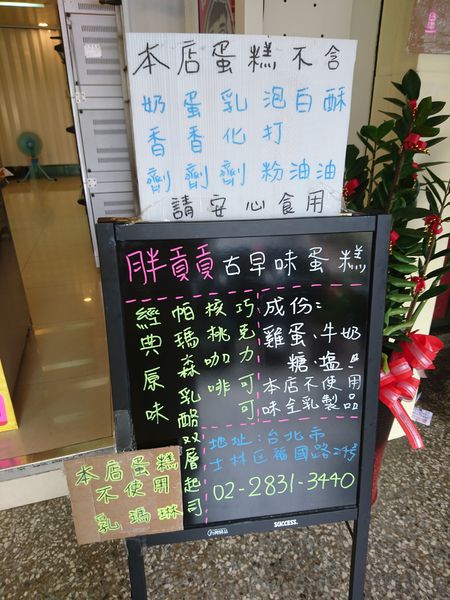 本店蛋糕不含
奶蛋乳泡白酥
香香化打
劑劑劑粉油油
請安心食用
胖貢貢古早味蛋糕
經典原味
帕瑪森乳酪雙層起司
核桃咖啡
巧克力可可
成份:
雞蛋、牛奶
糖、鹽
本店不使用
味全乳製品
地址:台北市
士林區福國路2號
02-2831-3440
本店蛋糕
不使用
乳瑪琳
SUCCESS.